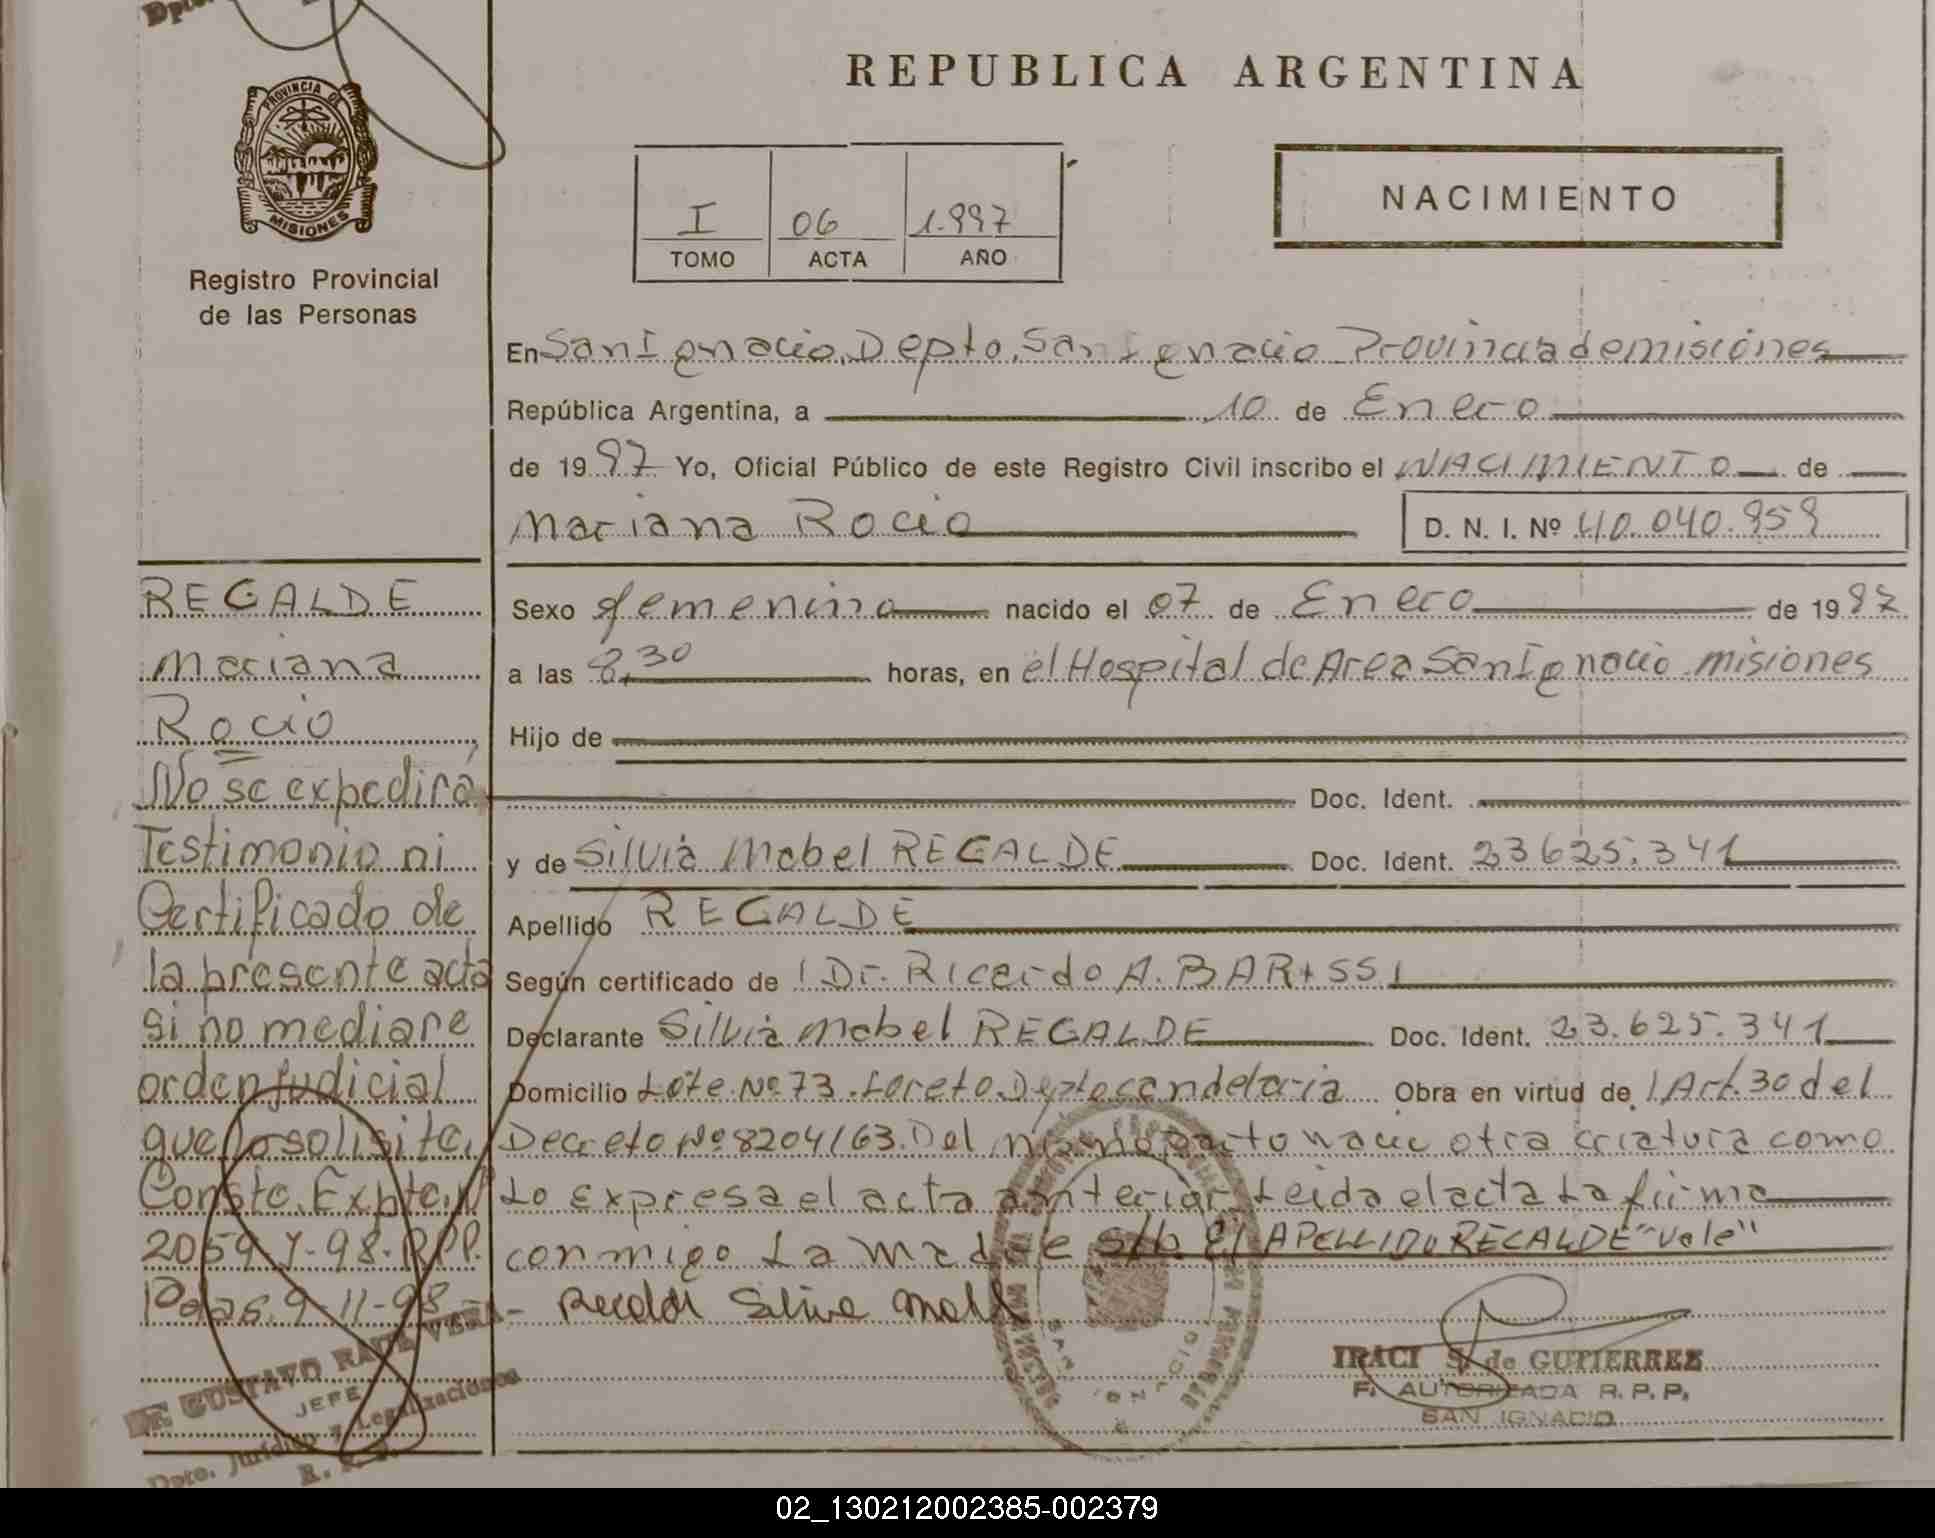 Dpto.
PROVINCIA DE
MISIONES
Registro Provincial
de las Personas
REPUBLICA ARGENTINA
I 06 1.997
TOMO ACTA AÑO
NACIMIENTO
En San Ignacio, Depto. San Ignacio Provincia de misiones
República Argentina, a 10 de Enero
de 1997 Yo, Oficial Público de este Registro Civil inscribo el NACIMIENTO de
Mariana Rocio D. N. I. Nº 40.040.959
Sexo femenino nacido el 07 de Enero de 1997
a las 8,30 horas, en el Hospital de Area San Ignacio misiones
Hijo de
Doc. Ident.
y de Silvia Mabel REGALDE Doc. Ident. 23625.341
Apellido REGALDE
Según certificado de Dr. Ricardo A. BARTSSI
Declarante Silvia Mabel REGALDE Doc. Ident. 23.625.341
Domicilio Lote Nº 73. Loreto. Depto candelaria Obra en virtud de l Art. 30 del
Decreto Nº 8204/63. Del mismo parto nacio otra criatura como
Lo expresa el acta anterior, Leida el acta La firma
conmigo La madre s/b. El APELLIDO RECALDE "Vale"
Recalde Silvia Mabel
REGALDE
Mariana
Rocio
No se expedirá
Testimonio ni
Certificado de
la presente acta
si no mediare
orden judicial
que lo solisite.
Conste. Expte. Nº
2059-Y-98-RPP.
Pdas. 9-11-98
Dr. GUSTAVO RAUL VERA
JEFE
Dpto. Jurídico y Legalizaciones
R. P. P.
SAN IGNACIO
IRACI S. de GUTIERREZ
F. AUTORIZADA R. P. P.
SAN IGNACIO
02_130212002385-002379